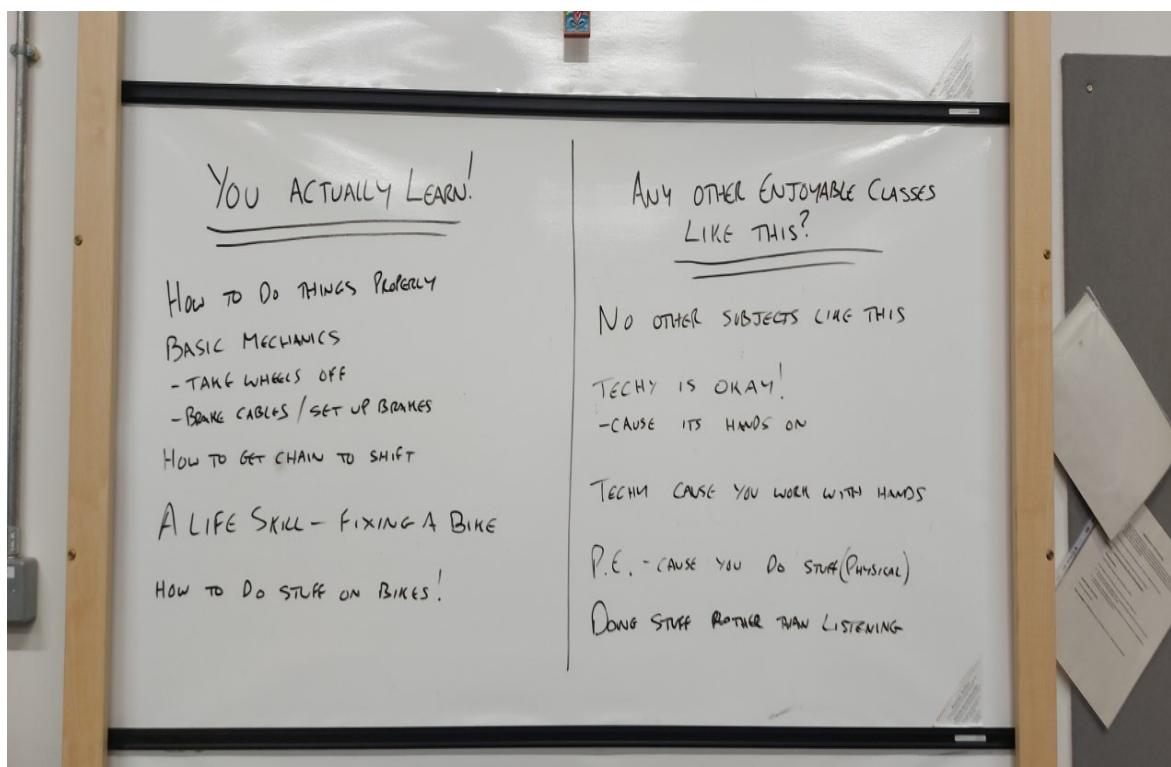 You Actually Learn!
How to Do things Properly
Basic Mechanics
- Take wheels off
- Brake cables / set up brakes
How to get chain to shift
A Life Skill - Fixing A Bike
How to Do stuff on Bikes!
Any other Enjoyable Classes
Like this?
No other subjects like this
Techy is okay!
- cause its hands on
Techy cause you work with hands
P.E. - cause you Do stuff (Physical)
Doing stuff rather than Listening